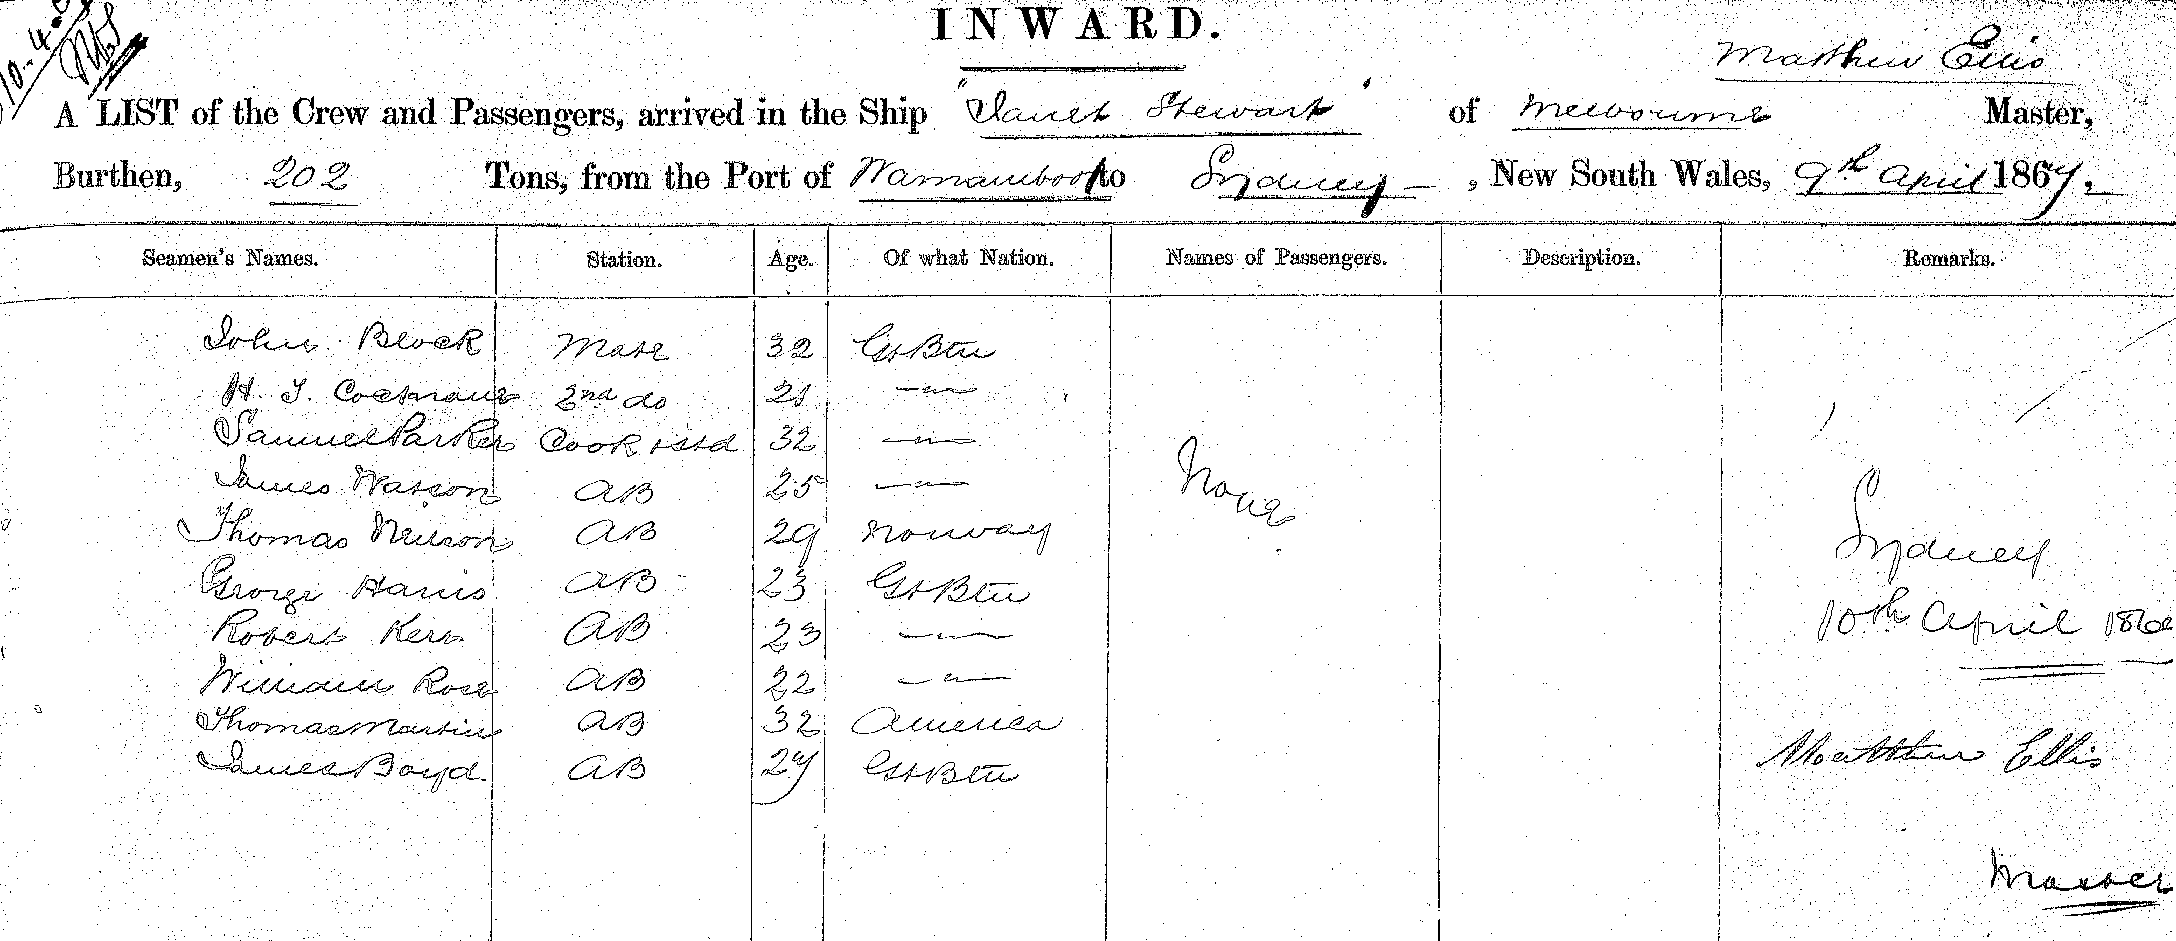 10-4-
INWARD.
Matthew Ellis
A LIST of the Crew and Passengers, arrived in the Ship "Janet Stewart" of Melbourne Master,
Burthen, 202 Tons, from the Port of Warnambool to Sydney, New South Wales, 9th April 1867.
Seamen's Names. Station. Age. Of what Nation. Names of Passengers. Description. Remarks.
John Block Mate 32 Gt Btn
H. J. Cochrane 2nd do 21 — " —
Samuel Parker Cook & Std 32 — " —
James Watson AB 25 — " —
None
Thomas Neilson AB 29 Norway
Sydney
George Harris AB 23 Gt Btn
Robert Kerr AB 23 — " —
10th April 186
William Rose AB 22 — " —
Thomas Martin AB 32 America
James Boyd. AB 27 Gt Btn
Matthew Ellis
Master